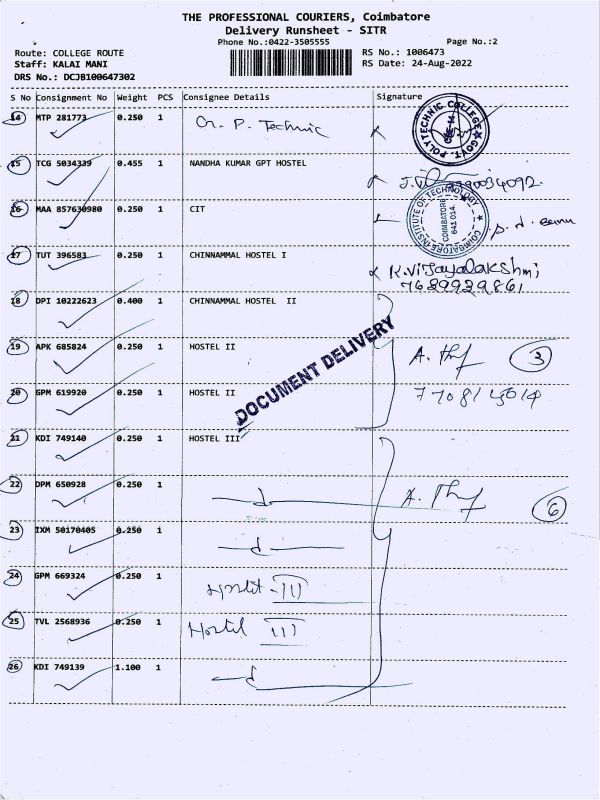 THE PROFESSIONAL COURIERS, Coimbatore
Delivery Runsheet - SITR
Phone No.:0422-3505555 Page No.:2
Route: COLLEGE ROUTE RS No.: 1006473
Staff: KALAI MANI RS Date: 24-Aug-2022
DRS No.: DCJB100647302
S No Consignment No Weight PCS Consignee Details Signature
14 MTP 281773 0.250 1 P. Technic
GOVT. POLYTECHNIC COLLEGE
15 TCG 5034339 0.455 1 NANDHA KUMAR GPT HOSTEL
16 MAA 857630980 0.250 1 CIT
COIMBATORE INSTITUTE OF TECHNOLOGY
COIMBATORE
641 014.
17 TUT 396583 0.250 1 CHINNAMMAL HOSTEL I
K.Vijayalakshmi
7639929861
18 DPI 10222623 0.400 1 CHINNAMMAL HOSTEL II
DOCUMENT DELIVERY
19 APK 685824 0.250 1 HOSTEL II A. 3
20 GPM 619920 0.250 1 HOSTEL II
21 KDI 749140 0.250 1 HOSTEL III
22 DPM 650928 0.250 1 A. 6
23 IXM 50170405 0.250 1
24 GPM 669324 0.250 1 Hostel - III
25 TVL 2568936 0.250 1 Hostel III
26 KDI 749139 1.100 1